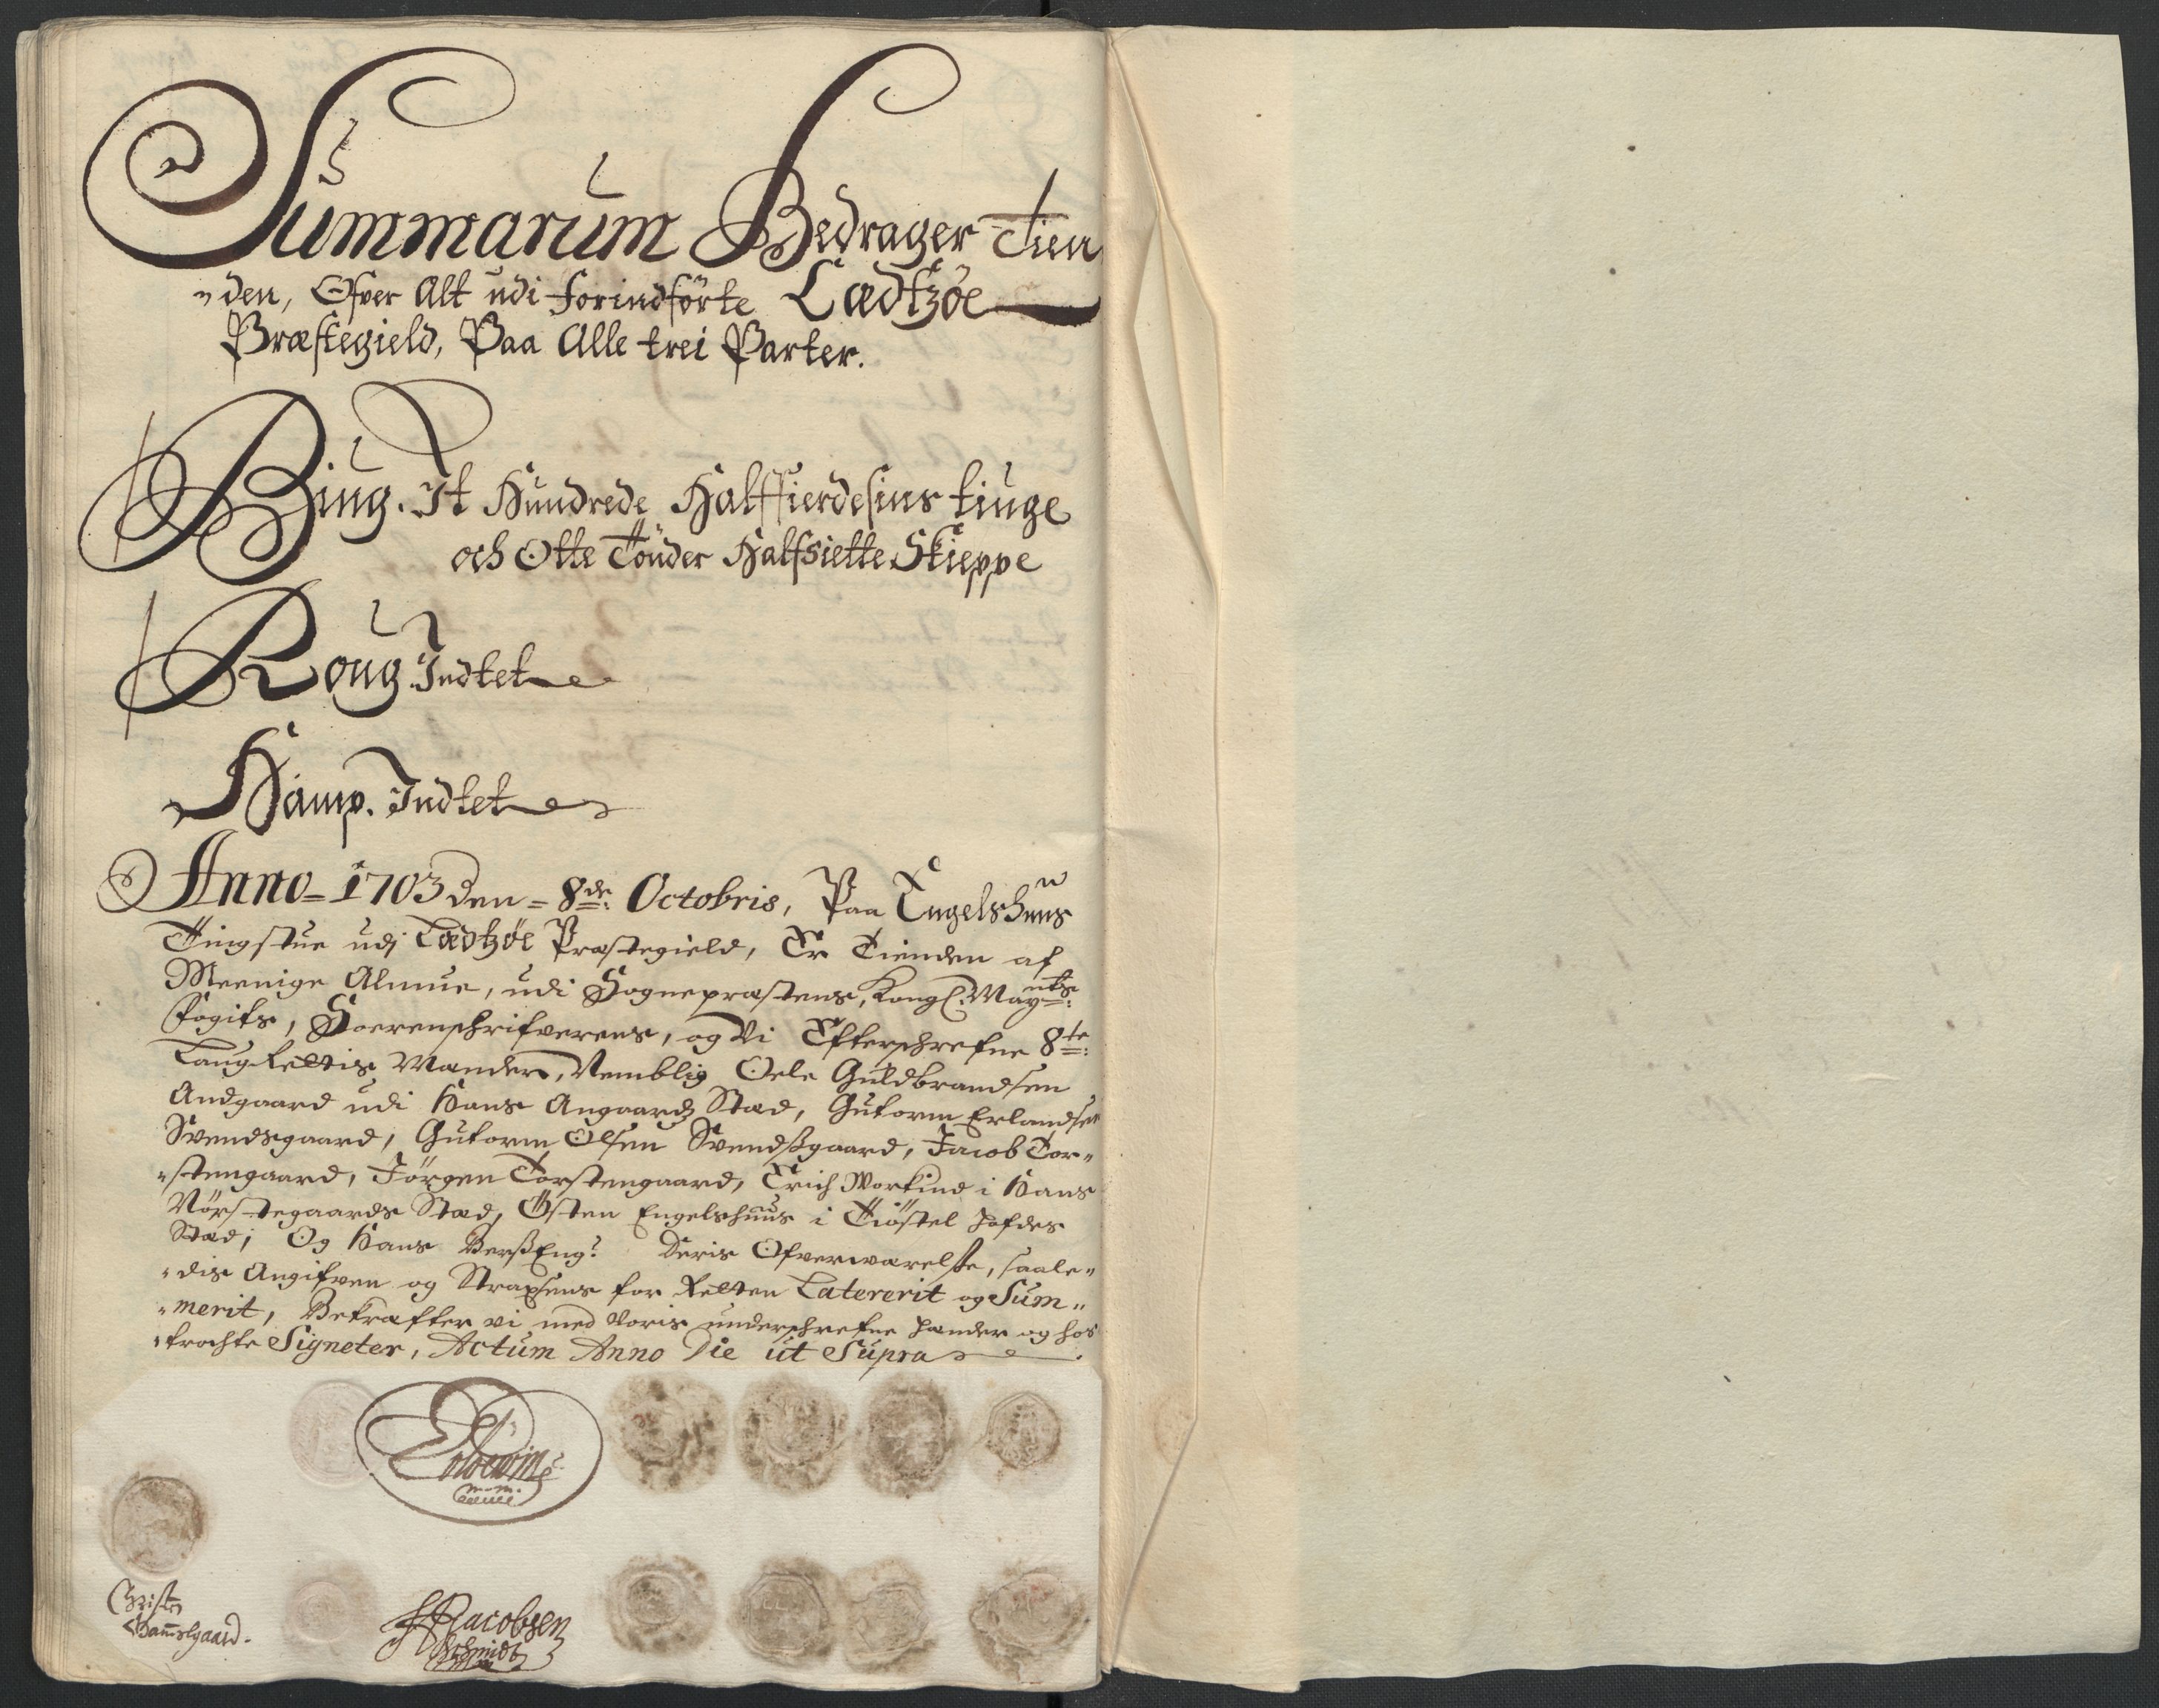 Summarum Bedrager Tien
"den, Ofver Alt udi forindförte Lædtzöe
Præstegield, Paa Alle trei Parter.
Biug. It Hundrede Halffierdesins tiuge
och Otte Tönder Halfsiette Skieppe
Roug. Indtet
Hamp. Indtet
Anno = 1703 den = 8de: Octobris, Paa Engelshuus
Tingstue udj Lædtzöe Præstegield, Er Tienden af
Meenige Almue, udi Sognepræstens, Kongl. Mayts:
Fogits, Soerenschrifverens, og Vi Efterschrefne 8te:
Laugrettis Mænder, Nemblig Oele Guldbrandsen
Andgaard udi Hans Angaards Stæd, Gutorm Erlandsen
Svendsgaard, Gutorm Olsen Svendsgaard, Jacob Tor"
"stengaard, Jörgen Torstengaard, Erich Morkind i Hans
Nörstegaards Stæd, Östen Engelshuus i Tiöstel Hofdes
Stæd; Og Hans BerßEng? Deris Ofverwærelse, saale"
"dis Angifven og Strax for Retten Latererit og Sum"
"merit, Bekræfter vi med voris underschrefne Hænder og hos
"trøchte Signeter, Actum Anno Die ut Supra
m-m.
Christen
Bamsgaard.
Jacobsen
Schmidt